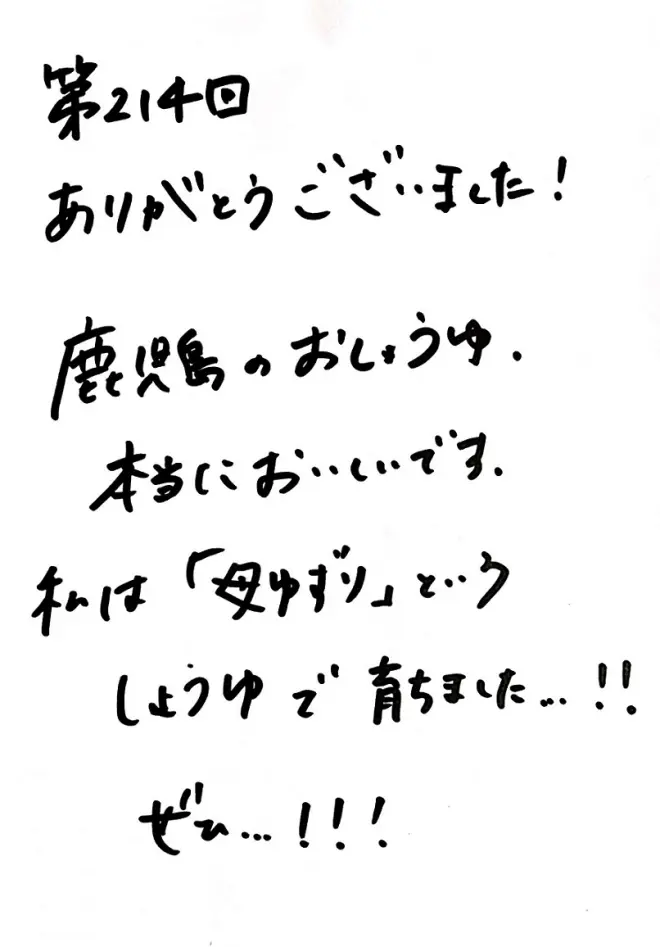 第214回
ありがとうございました！
鹿児島のおしょうゆ.
本当においしいです.
私は「母ゆずり」という
しょうゆで育ちました...!!
ぜひ...!!!